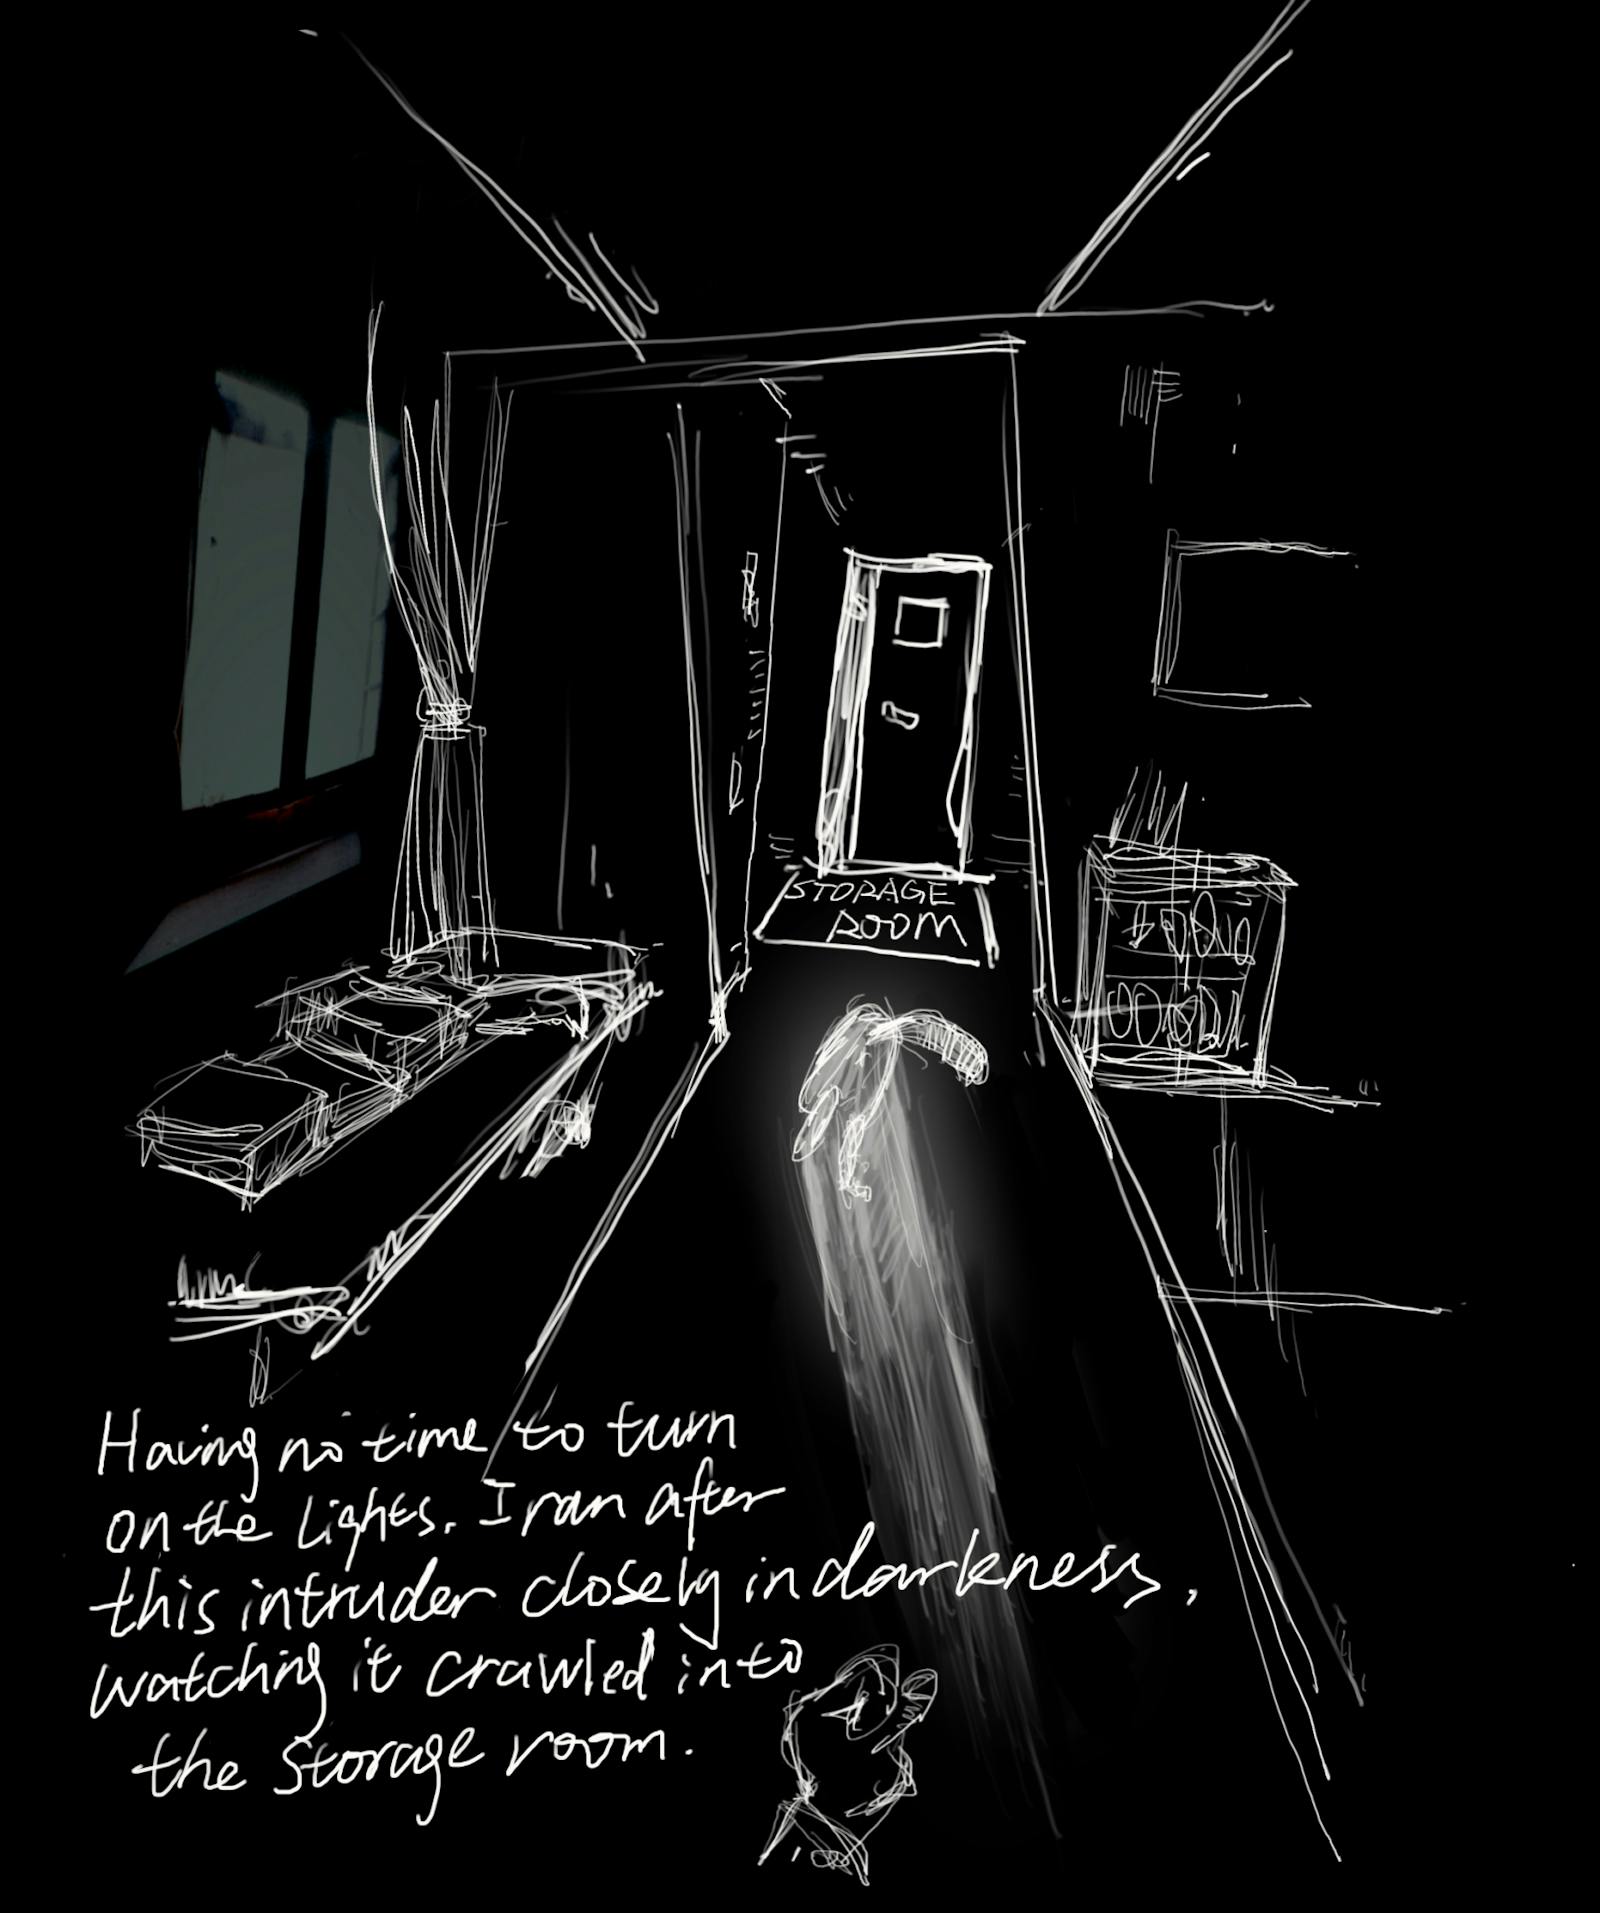 STORAGE
ROOM
Having no time to turn
on the lights. I ran after
this intruder closely in darkness,
watching it crawled into
the storage room.